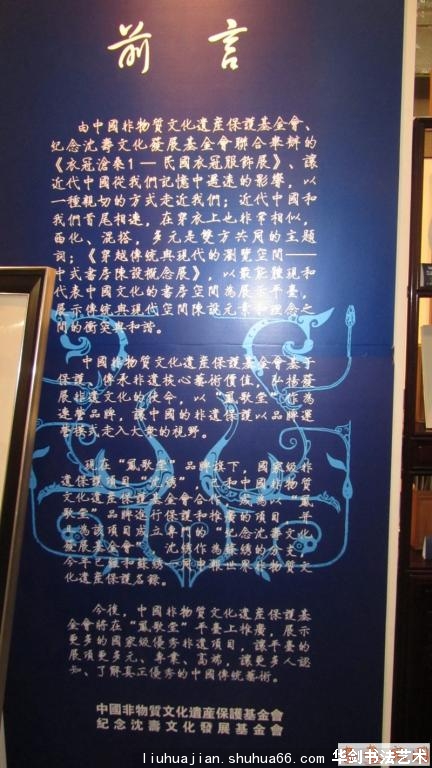 前言
由中國非物質文化遺産保護基金會、
紀念沈壽文化發展基金會聯合舉辦的
《衣冠滄桑1—民國衣冠服飾展》、讓
近代中國從我們記憶中遥遠的影響，以
一種親切的方式走近我們；近代中國和
我們首尾相連，在穿衣上也非常相似，
西化、混搭，多元是雙方共同的主題
詞；《穿越傳統與現代的瀏覽空間——
中式書房陳設概念展》，以最能體現和
代表中國文化的書房空間為展示平臺，
展示傳統與現代空間陳設元素和理念之
間的衝突與和諧。
中國非物質文化遺産保護基金會基于
保護、傳承非遺核心藝術價值，弘揚發
展非遺文化的使命，以“鳳歌堂”作為
運營品牌，讓中國的非遺保護以品牌運
營模式走入大衆的視野。
現在“鳳歌堂”品牌旗下，國家級非
遺保護項目“沈綉”，已和中國非物質
文化遺産保護基金會合作，成為“鳳
歌堂”品牌進行保護和推廣的項目，并
為該項目成立專門的“紀念沈壽文化
發展基金會”，沈綉作為蘇綉的分支，
今年已經和蘇綉一同申報世界非物質文
化遺産保護名錄。
今後，中國非物質文化遺産保護基
金會將在“鳳歌堂”平臺上推廣，展示
更多的國家級優秀非遺項目，讓平臺的
展項更多元、專業、高端，讓更多人認
知、了解真正優秀的中國傳統藝術。
中國非物質文化遺産保護基金會
紀念沈壽文化發展基金會
liuhuajian.shuhua66.com 华剑书法艺术